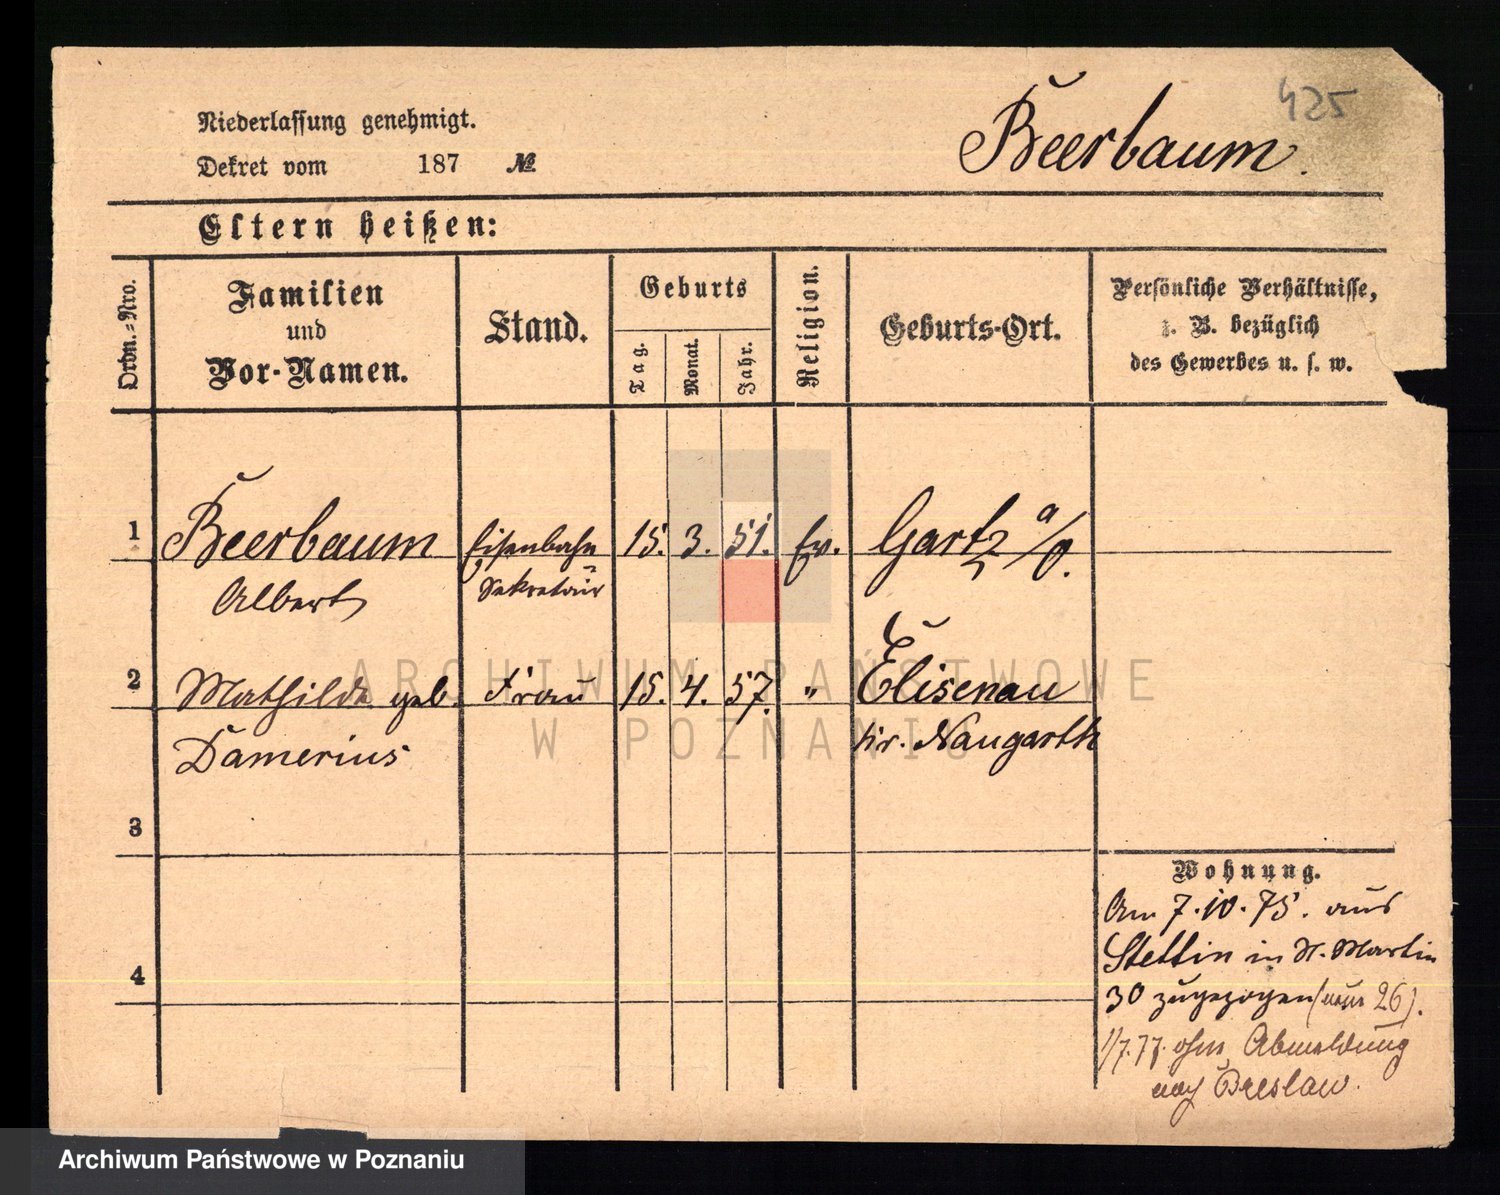 425
Beerbaum.
Niederlassung genehmigt.
Dekret vom 187 №
Eltern heißen:
Ordn.-Nro.
Familien
und
Vor-Namen.
Stand.
Geburts
Tag.
Monat.
Jahr.
Religion.
Geburts-Ort.
Persönliche Verhältnisse,
z. B. bezüglich
des Gewerbes u. s. w.
1 Beerbaum Eisenbahn 15. 3. 51. Ev. Gartz a/O.
Albert Sekretair
2 Mathilde geb. Frau 15. 4. 57. " Elisenau
Damerius Kr. Naugardt
3
4
Wohnung.
Am 7.10.75. aus
Stettin in St. Martin
30 zugezogen (neue 26).
1/7.77. ohne Abmeldung
nach Breslau.
ARCHIWUM PAŃSTWOWE
W POZNANIU
Archiwum Państwowe w Poznaniu